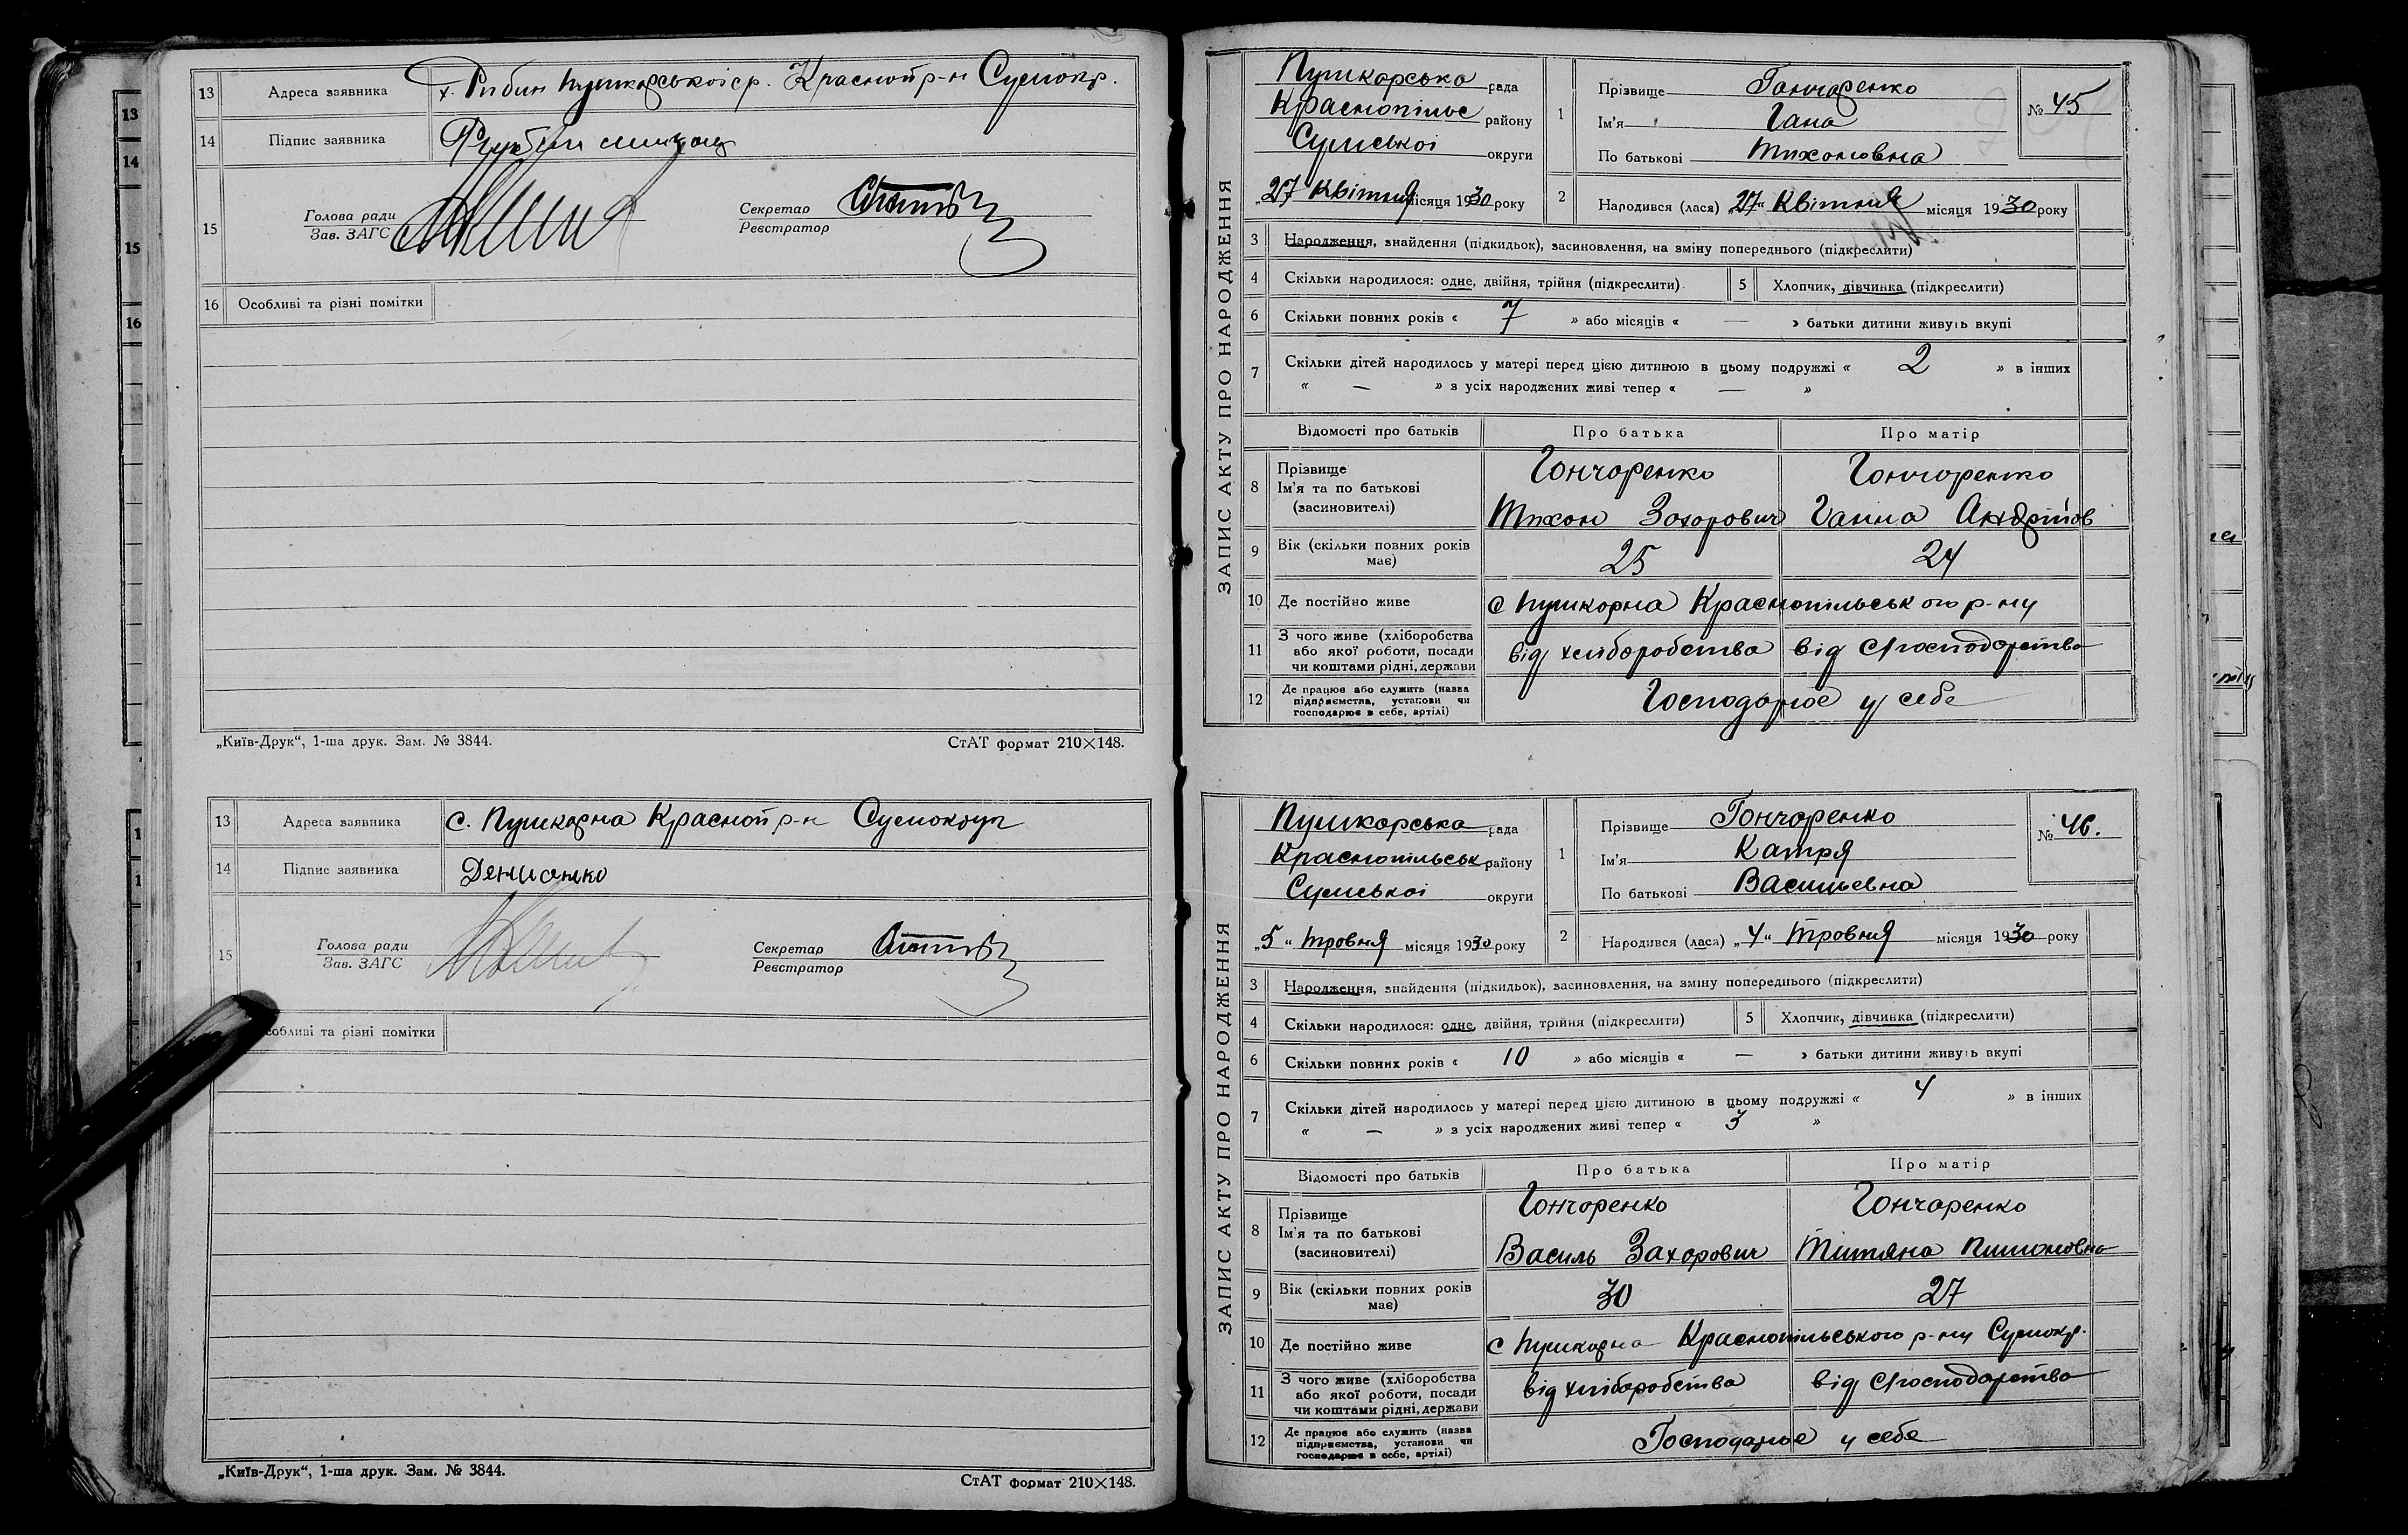 13 Адреса заявника х. Рибин Пушкарської с.р. Краснопр-н Сумокр.
14 Підпис заявника
15 Голова ради Секретар
Зав. ЗАГС Реєстратор
16 Особливі та різні помітки
„Київ-Друк“, 1-ша друк. Зам. № 3844. СтАТ формат 210×148.
13 Адреса заявника с. Пушкарна Красноп р-н Сумокруг
14 Підпис заявника Денисенко
15 Голова ради Секретар
Зав. ЗАГС Реєстратор
собливі та різні помітки
„Київ-Друк“, 1-ша друк. Зам. № 3844. СтАТ формат 210×148.
ЗАПИС АКТУ ПРО НАРОДЖЕННЯ
Пушкарська рада
Краснопільс району
Сумської округи
„27 Квітня місяця 1930 року
1 Прізвище Гончаренко
Ім'я Гана
По батькові Тихоновна
№ 45
2 Народився (лася) „27“ Квітня місяця 1930 року
3 Народження, знайдення (підкидьок), засиновлення, на зміну попереднього (підкреслити)
4 Скільки народилося: одне, двійня, трійня (підкреслити) 5 Хлопчик, дівчинка (підкреслити)
6 Скільки повних років « 7 » або місяців « — » батьки дитини живуть вкупі
7 Скільки дітей народилось у матері перед цією дитиною в цьому подружжі « 2 » в інших
« — » з усіх народжених живі тепер « — »
Відомості про батьків Про батька Про матір
8 Прізвище Гончаренко Гончаренко
Ім'я та по батькові
(засиновителі) Тихон Захорович Ганна Андріїов
9 Вік (скільки повних років має) 25 24
10 Де постійно живе с Пушкарна Краснопільського р-ну
11 З чого живе (хліборобства
або якої роботи, посади
чи коштами рідні, держави від хліборобства від С/господарства
12 Де працює або служить (назва
підприємства, установи чи
господарює в себе, артілі) Господарює у себе
ЗАПИС АКТУ ПРО НАРОДЖЕННЯ
Пушкарська рада
Краснопільськ району
Сумської округи
„5“ Травня місяця 1930 року
1 Прізвище Гончаренко
Ім'я Катря
По батькові Васильевна
№ 46.
2 Народився (лася) „4“ Травня місяця 1930 року
3 Народження, знайдення (підкидьок), засиновлення, на зміну попереднього (підкреслити)
4 Скільки народилося: одне, двійня, трійня (підкреслити) 5 Хлопчик, дівчинка (підкреслити)
6 Скільки повних років « 10 » або місяців « — » батьки дитини живуть вкупі
7 Скільки дітей народилось у матері перед цією дитиною в цьому подружжі « 4 » в інших
« — » з усіх народжених живі тепер « 3 »
Відомості про батьків Про батька Про матір
8 Прізвище Гончаренко Гончаренко
Ім'я та по батькові
(засиновителі) Василь Захорович Титяна Пилиповна
9 Вік (скільки повних років має) 30 27
10 Де постійно живе с Пушкарна Краснопільського р-ну Сумокр.
11 З чого живе (хліборобства
або якої роботи, посади
чи коштами рідні, держави від хліборобства від С/господарства
12 Де працює або служить (назва
підприємства, установи чи
господарює в себе, артілі) Господарює у себе